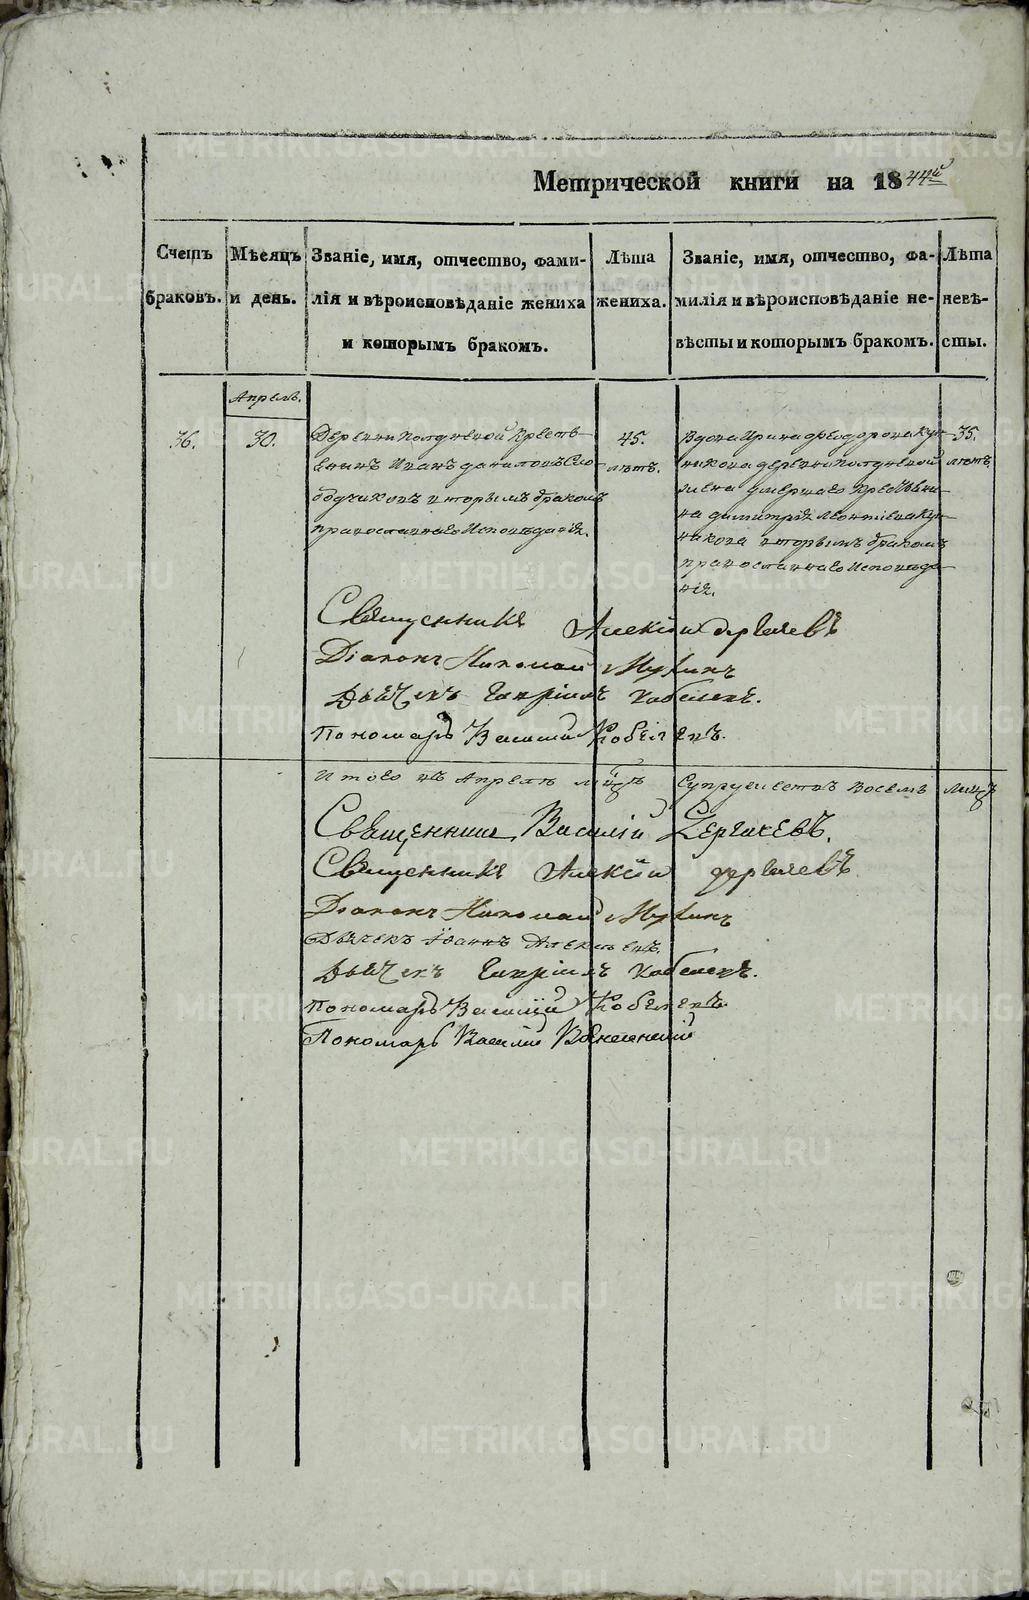 Метрической книги на 1844й
Счетъ браковъ.
Мѣсяцъ и день.
Званіе, имя, отчество, фами-
лія и вѣроисповѣданіе жениха
и которымъ бракомъ.
Лѣта
жениха.
Званіе, имя, отчество, фа-
милія и вѣроисповѣданіе не-
вѣсты и которымъ бракомъ.
Лѣта
невѣ-
сты.
Апрель.
36.
30.
Деревни Полдневой Кресть-
енинъ Иванъ Даниловъ Сло-
бодчиковъ вторымъ бракомъ
православнаго Исповѣданія.
45.
лѣтъ.
Вдова Ирина Феодорова Кун-
никова деревни Полдневой
жена умершаго Крестьяни-
на Димитрія Леонтиева Кун-
никова вторымъ бракомъ
православнаго Исповѣда-
нія.
35.
лѣтъ.
Священникъ Алексій Дергачевъ
Діаконъ Николай Мухинъ
Дьячекъ Гавріилъ Кобелевъ.
Пономарь Василий Кобелевъ.
Итого въ Апрелѣ мцѣ Супружествъ Восемь
Священникъ Василій Дергачевъ.
Священникъ Алексій Дергачевъ
Діаконъ Николай Мухинъ
Дьячекъ Іоаннъ Алексѣевъ.
Дьячекъ Гавріилъ Кобелевъ.
Пономарь Василий Кобелевъ
Пономарь Василій Вознесенскій
METRIKI.GASO-URAL.RU